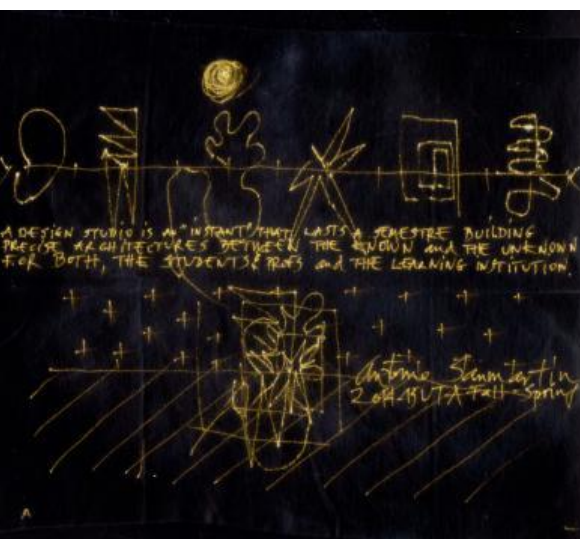 A DESIGN STUDIO IS AN "INSTANT" THAT LASTS A SEMESTRE BUILDING
PRECISE ARCHITECTURES BETWEEN THE KNOWN and THE UNKNOWN
FOR BOTH, THE STUDENTS, PROFS and THE LEARNING INSTITUTION.
Antonio Sanmartin
UTA Fall Spring
A